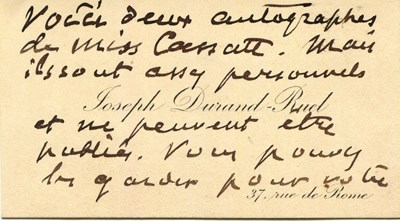 Voici deux autographes
de Miss Cassatt. Mais
ils sont assez personnels
Joseph Durand-Ruel
et ne peuvent être
publiés. Vous pouvez
les garder pour votre
37, rue de Rome